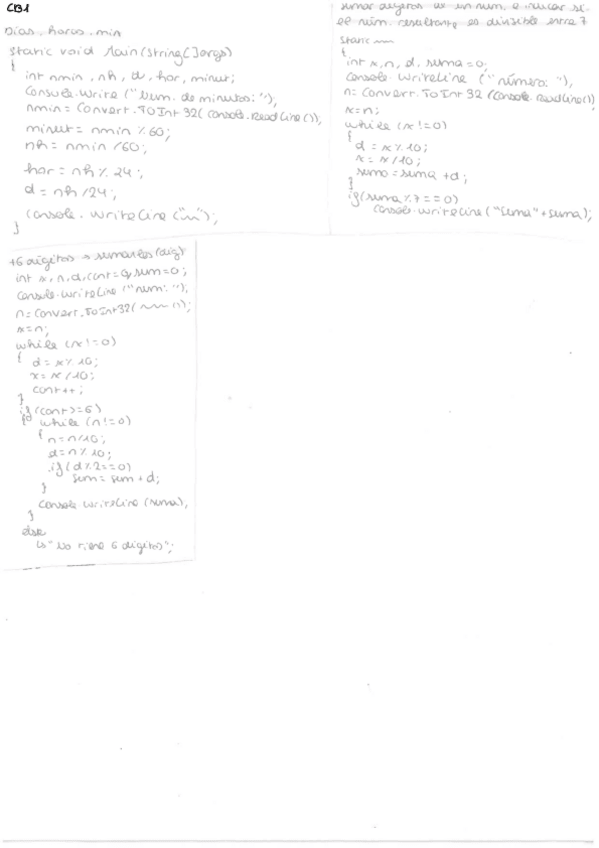 CB1
Días, horas, min
static void Main(String[]args)
{
int nmin, nh, d, har, minut;
Console.Write ("Num. de minutos: ");
nmin = Convert.ToInt32( console.ReadLine());
minut = nmin % 60;
nh = nmin /60;
har = nh % 24;
d = nh /24;
console.WriteLine(" ");
}
sumar dígitos de un num. e indicar si
el núm. resultante es divisible entre 7
static
{
int x, n, d, suma=0;
Console.WriteLine ("número: "),
n= Convert.ToInt 32 (Console.ReadLine())
x=n;
while (x !=0)
{
d = x % 10;
x = x /10;
suma=suma +d;
}
if(suma % 7 ==0)
Console.WriteLine ("Suma"+suma);
+6 dígitos → sumarlos (dig)
int x, n, d, cont=0, sum=0;
Console.WriteLine ("num: ");
n= Convert.ToInt32( ());
x=n;
while (x !=0)
{ d = x % 10;
x = x /10;
cont++;
}
if (cont>=6)
{ while (n !=0)
{ n=n/10;
d=n % 10;
if (d % 2==0)
sum= sum + d;
}
Console.WriteLine (suma);
}
else
"No tiene 6 dígitos";